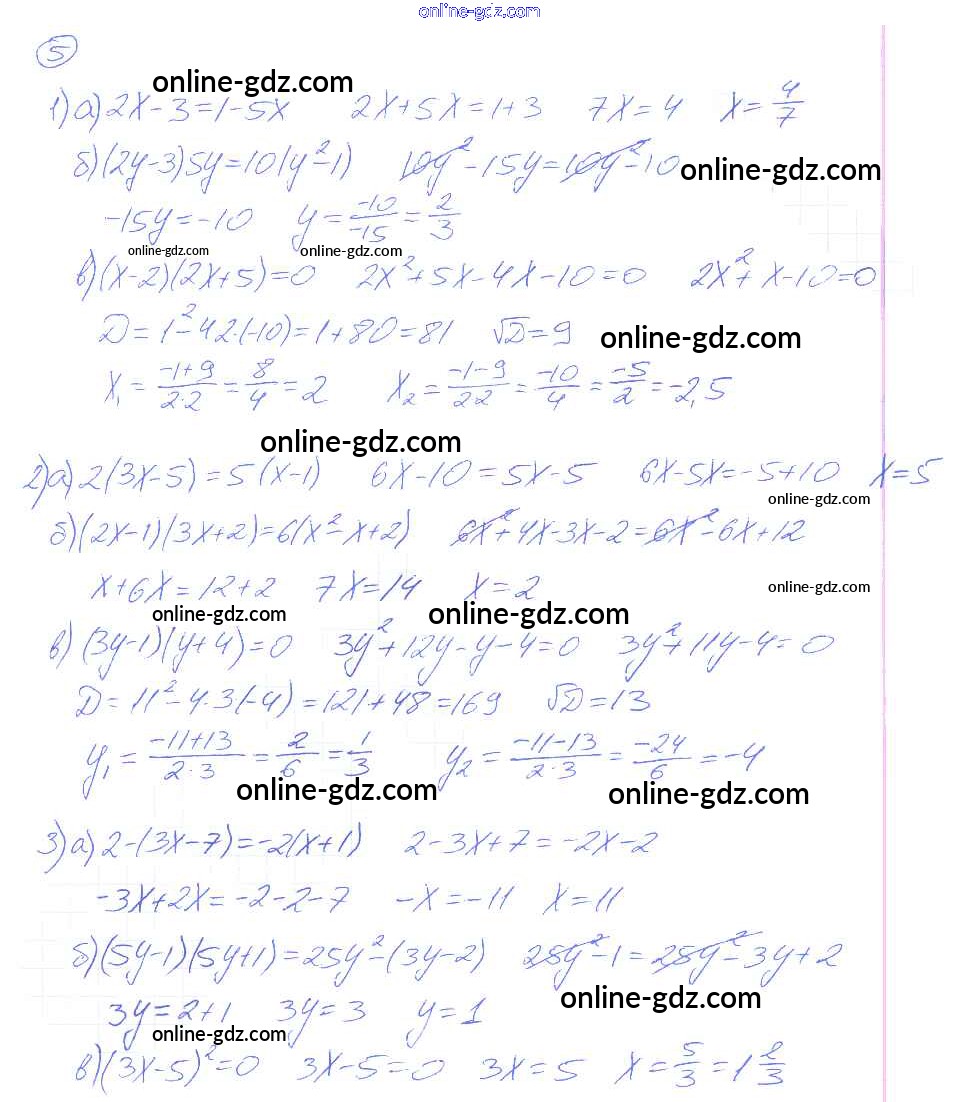 online-gdz.com
5
online-gdz.com
1) а) 2x-3=1-5x 2x+5x=1+3 7x=4 x=4/7
б) (2y-3)5y=10(y²-1) 10y²-15y=10y²-10 online-gdz.com
-15y=-10 y=-10/-15=2/3
online-gdz.com online-gdz.com
в) (x-2)(2x+5)=0 2x²+5x-4x-10=0 2x²+x-10=0
D=1²-42·(-10)=1+80=81 √D=9 online-gdz.com
x₁=-1+9/2·2=8/4=2 x₂=-1-9/2·2=-10/4=-5/2=-2,5
online-gdz.com
2) а) 2(3x-5)=5(x-1) 6x-10=5x-5 6x-5x=-5+10 x=5
online-gdz.com
б) (2x-1)(3x+2)=6(x²-x+2) 6x²+4x-3x-2=6x²-6x+12
x+6x=12+2 7x=14 x=2 online-gdz.com
online-gdz.com online-gdz.com
в) (3y-1)(y+4)=0 3y²+12y-y-4=0 3y²+11y-4=0
D=11²-4·3(-4)=121+48=169 √D=13
y₁=-11+13/2·3=2/6=1/3 y₂=-11-13/2·3=-24/6=-4
online-gdz.com online-gdz.com
3) а) 2-(3x-7)=-2(x+1) 2-3x+7=-2x-2
-3x+2x=-2-2-7 -x=-11 x=11
б) (5y-1)(5y+1)=25y²-(3y-2) 25y²-1=25y²-3y+2
3y=2+1 3y=3 y=1 online-gdz.com
online-gdz.com
в) (3x-5)²=0 3x-5=0 3x=5 x=5/3=1 2/3